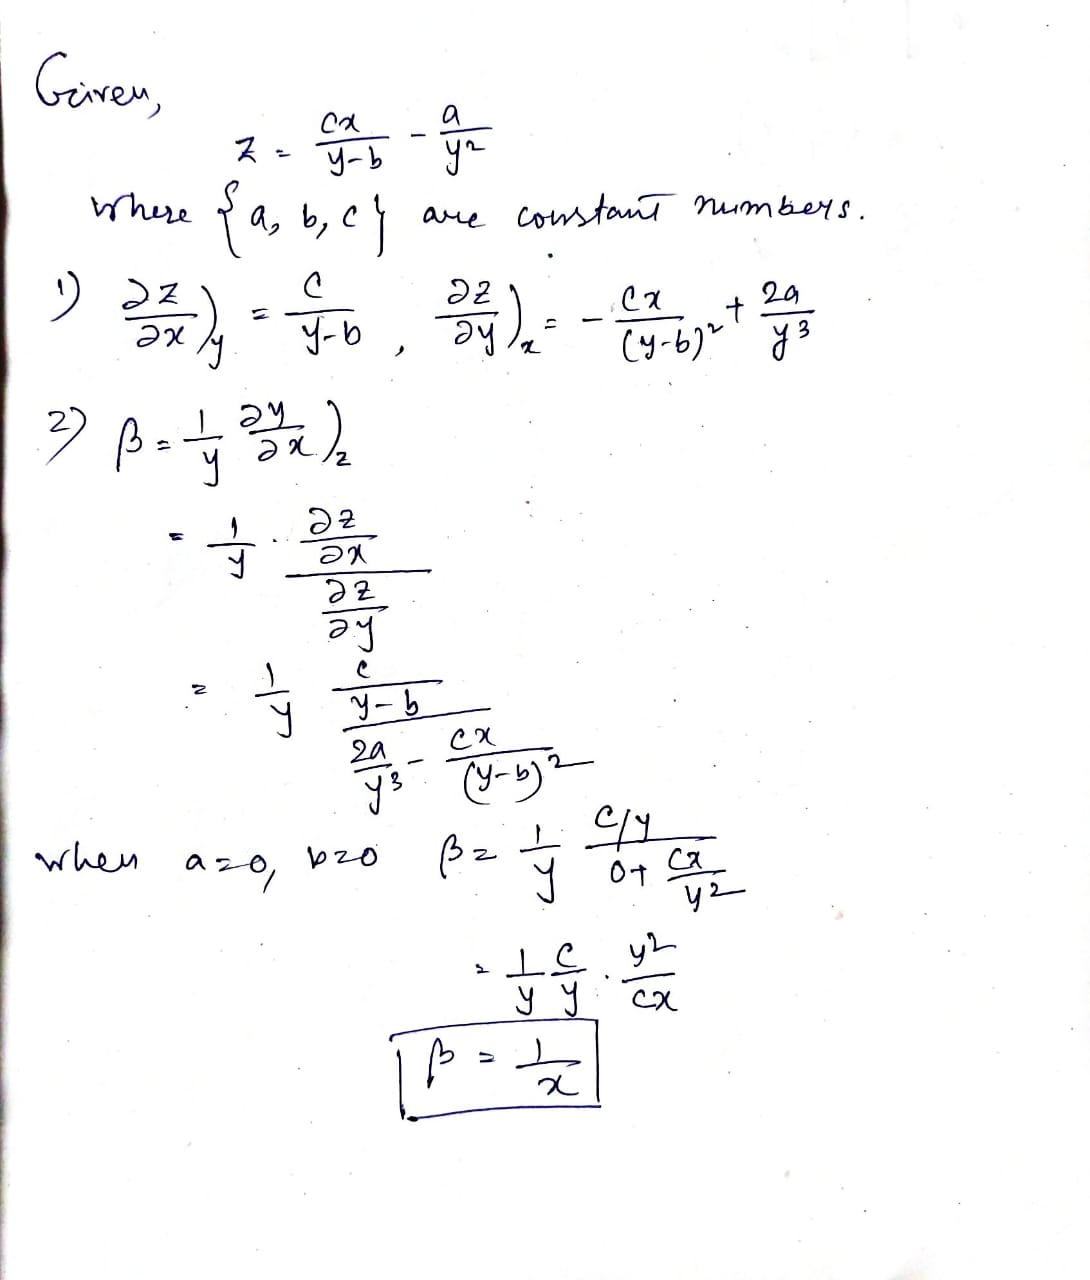 Given,
z = cx/(y-b) - a/y²
where {a, b, c} are constant numbers.
1) ∂z/∂x)_y = c/(y-b) , ∂z/∂y)_x = - cx/(y-b)² + 2a/y³
2) β = 1/y ∂y/∂x)_z
= 1/y · (∂z/∂x)/(∂z/∂y)
= 1/y (c/(y-b))/(2a/y³ - cx/(y-b)²)
when a=0, b=0 β = 1/y (c/y)/(0+ cx/y²)
= 1/y c/y · y²/cx
β = 1/x